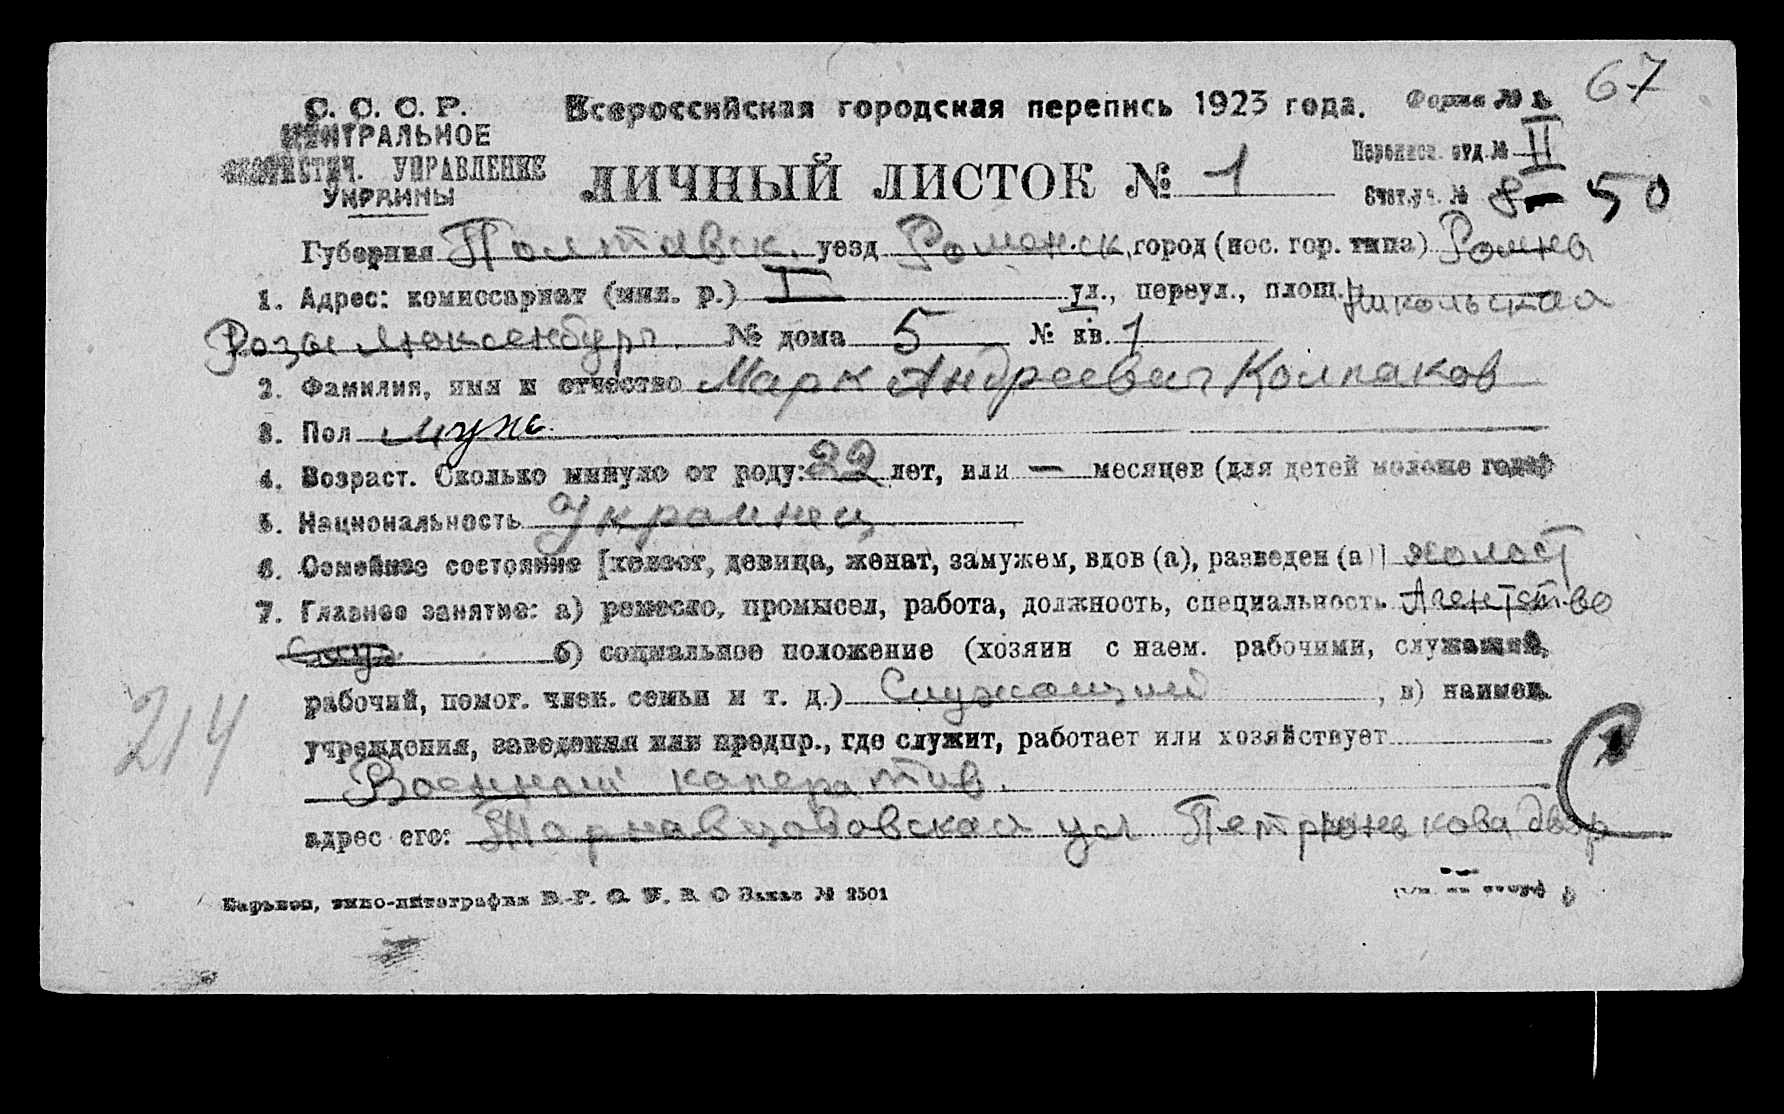 67
С. С. С. Р.
ЦЕНТРАЛЬНОЕ
СТАТИСТИЧ. УПРАВЛЕНИЕ
УКРАИНЫ
Всероссийская городская перепись 1923 года.
Форма № 1
Переписн. отд. № II
ЛИЧНЫЙ ЛИСТОК № 1
Счет. уч. № 8 - 50
Губерния Полтавск. уезд Роменск, город (пос. гор. типа) Ромна
1. Адрес: комиссариат (мил. р.) I ул., переул., площ. Никольская
Розы Люксенбург № дома 5 № кв. 1
2. Фамилия, имя и отчество Марк Андреевич Колпаков
3. Пол муж.
4. Возраст. Сколько минуло от роду: 22 лет, или — месяцев (для детей моложе года)
5. Национальность Украинец
6. Семейное состояние [холост, девица, женат, замужем, вдов (а), разведен (а)] холост
7. Главное занятие: а) ремесло, промысел, работа, должность, специальность Агентство
б) социальное положение (хозяин с наем. рабочими, служащий,
рабочий, помог. член. семьи и т. д.) Служащий, в) наимен.
214
учреждения, заведения или предпр., где служит, работает или хозяйствует
Военный каператив.
адрес его: ул двор
Харьков, типо-литография Заказ № 2501